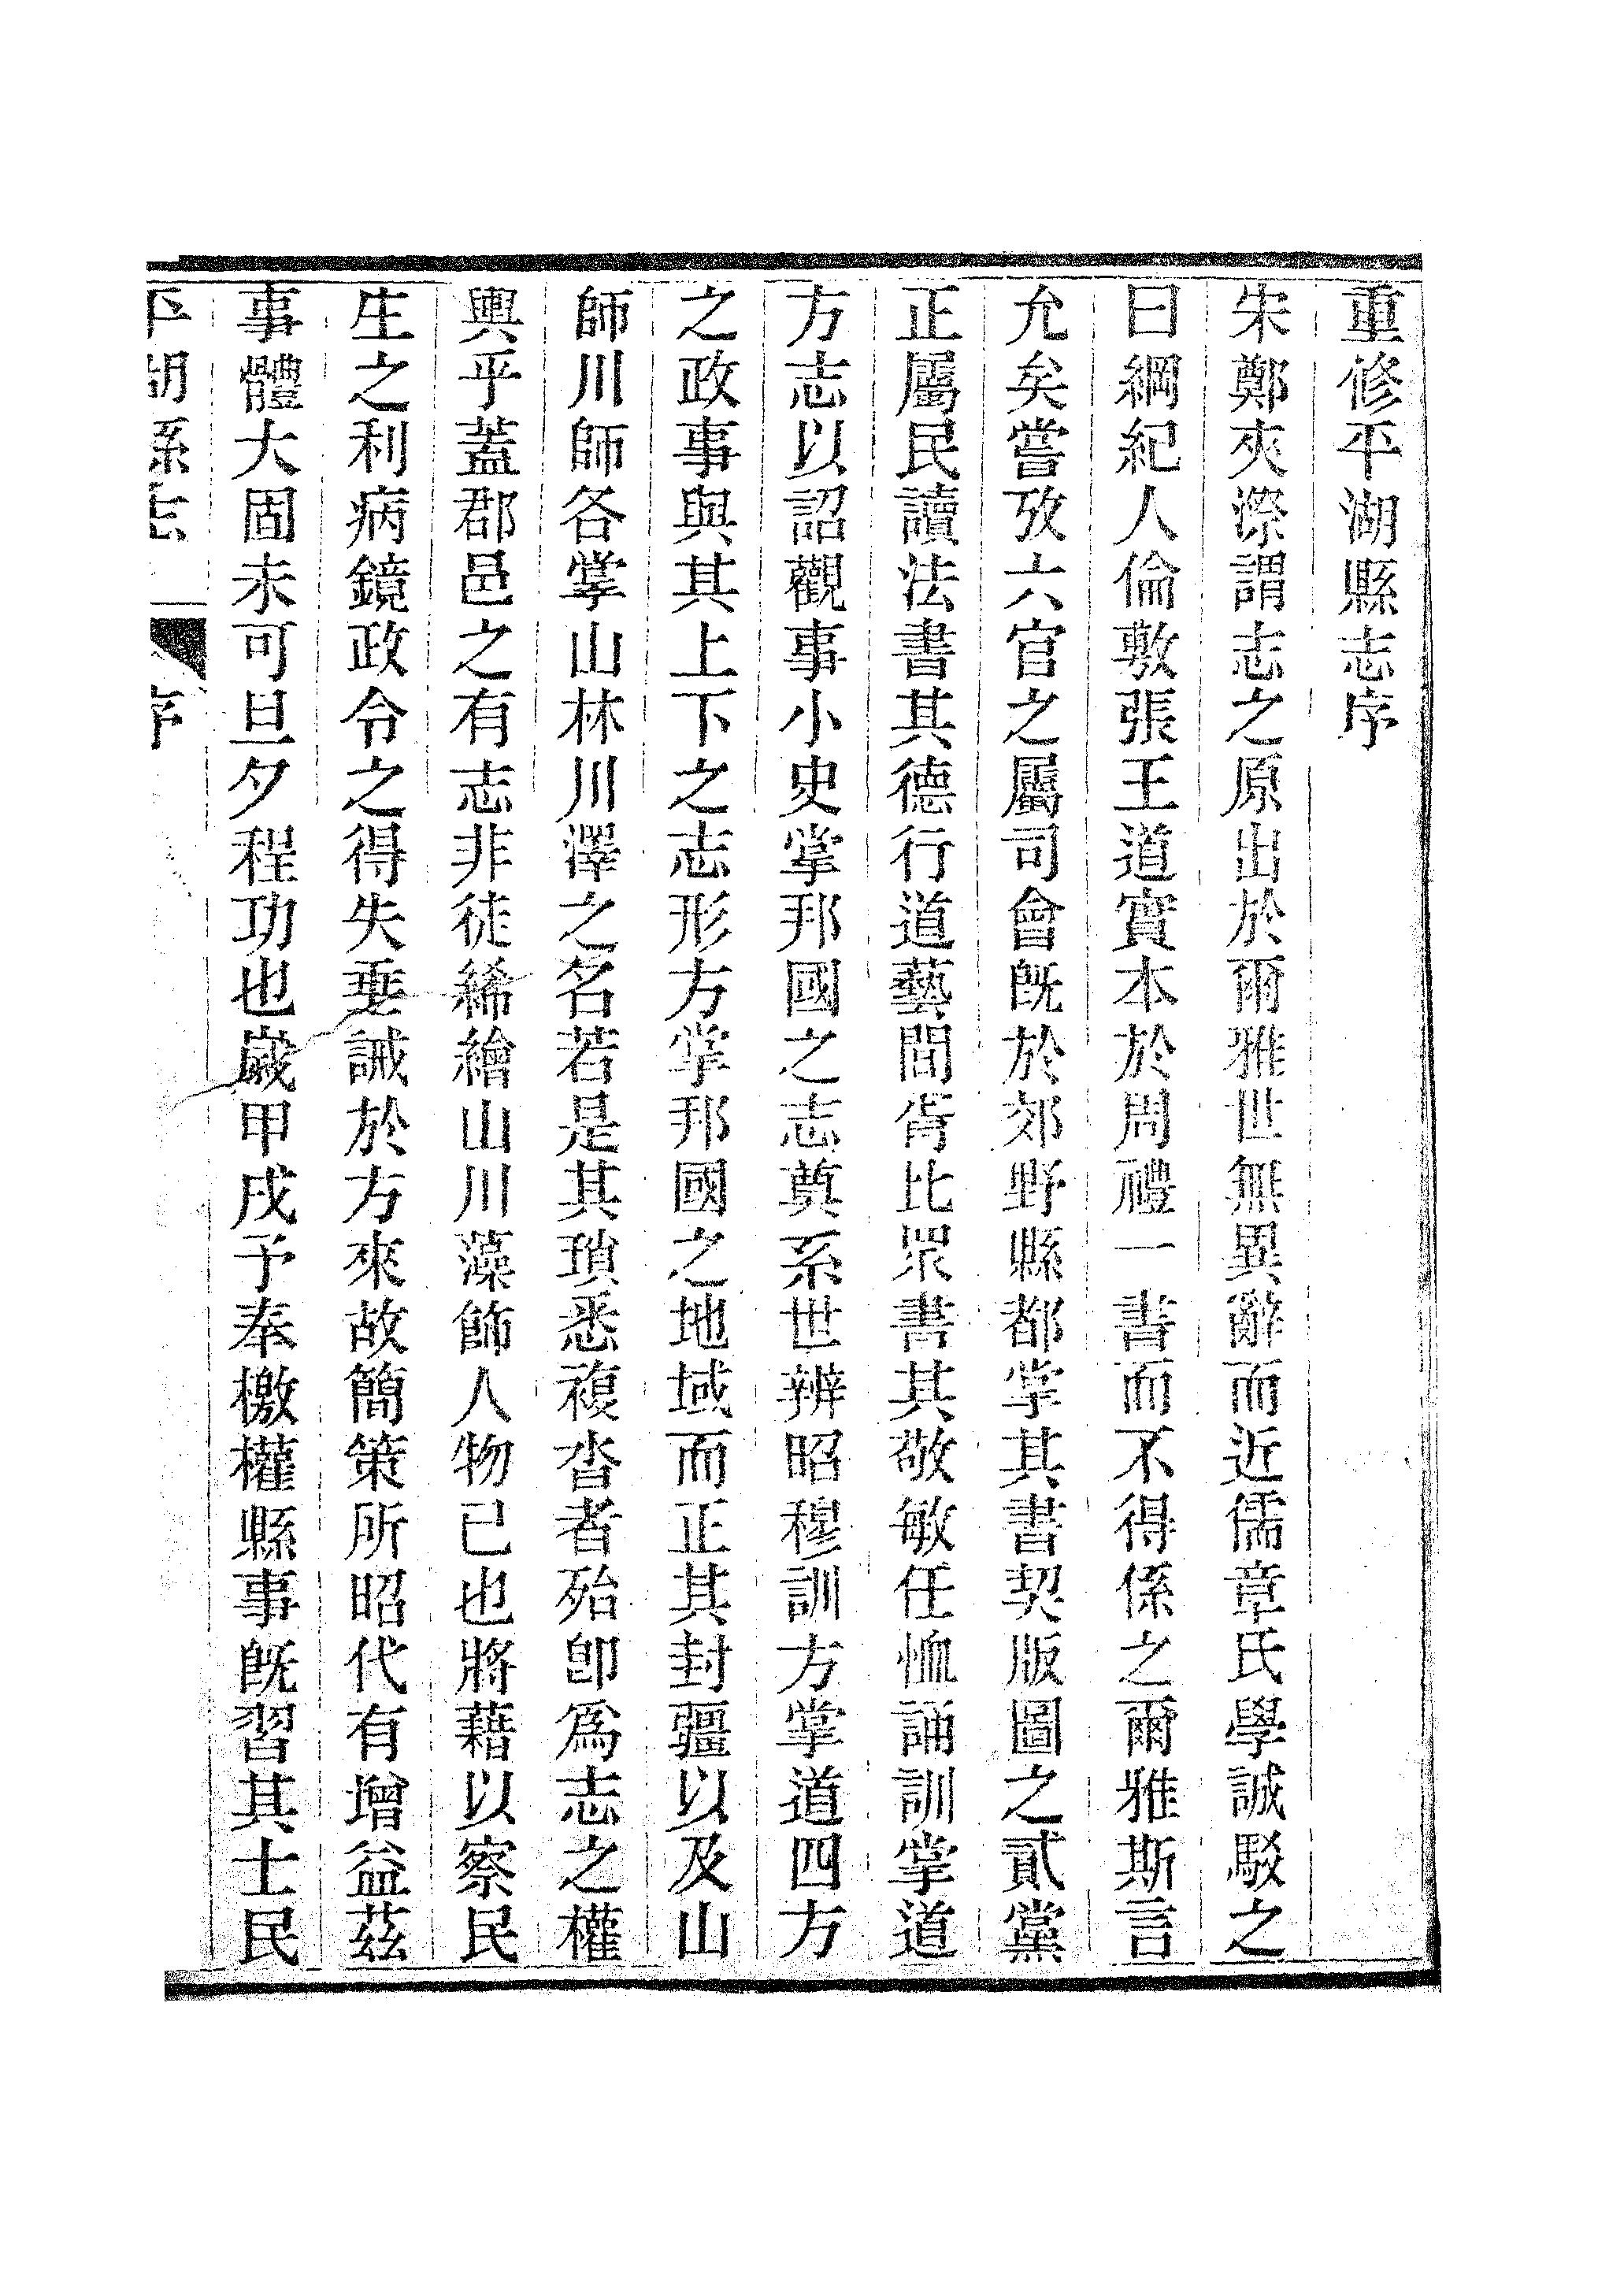 重修平湖縣志序
宋鄭夾漈謂志之原出於爾雅世無異辭而近儒章氏學誠駁之
曰綱紀人倫敷張王道實本於周禮一書而不得係之爾雅斯言
允矣嘗攷六官之屬司會旣於郊野縣都掌其書契版圖之貳黨
正屬民讀法書其德行道藝閭胥比眾書其敬敏任恤誦訓掌道
方志以詔觀事小史掌邦國之志奠系世辨昭穆訓方掌道四方
之政事與其上下之志形方掌邦國之地域而正其封疆以及山
師川師各掌山林川澤之名若是其瑣悉複沓者殆卽爲志之權
輿乎蓋郡邑之有志非徒絺繪山川藻飾人物已也將藉以察民
生之利病鏡政令之得失垂誡於方來故簡策所昭代有增益茲
事體大固未可旦夕程功也歲甲戌予奉檄權縣事旣習其士民
平湖縣志 序